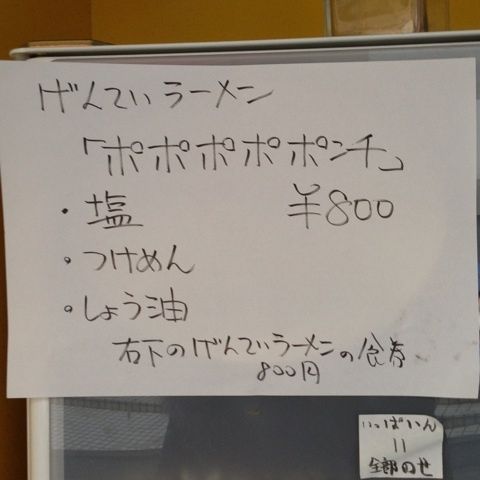 げんてぃラーメン
「ポポポポポンチ」
・塩 ¥800
・つけめん
・しょう油
右下のげんてぃラーメンの食券
800円
いっぱいん
||
全部のせ